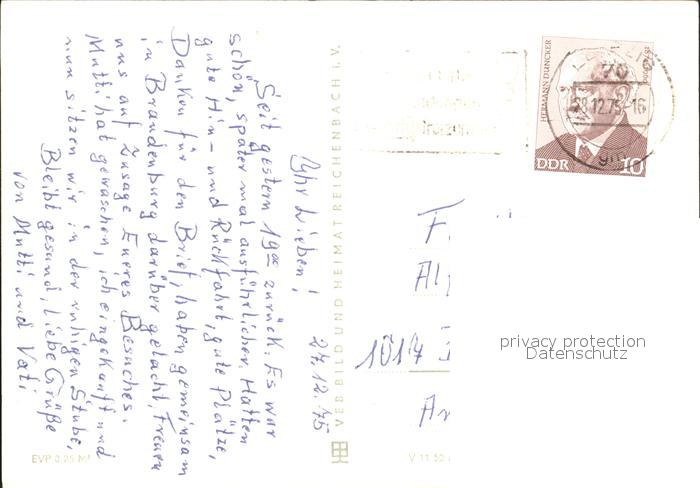 27.12.75
Ihr Lieben!
Seit gestern 19⁰⁰ zurück. Es war
schön, später mal ausführlicher. Hatten
gute Hin- und Rückfahrt, gute Plätze,
Danken für den Brief, haben gemeinsam
in Brandenburg darüber gelacht, freuen
uns auf Zusage Eueres Besuches.
Mutti hat gewaschen, ich eingekauft und
nun sitzen wir in der ruhigen Stube,
Bleibt gesund, liebe Grüße
von Mutti und Vati
EVP 0,25 M
VEB BILD UND HEIMAT REICHENBACH I. V.
V 11 50
HERMANN DUNCKER
DDR 10
70
28.12.75-16
F.
1017
privacy protection
Datenschutz